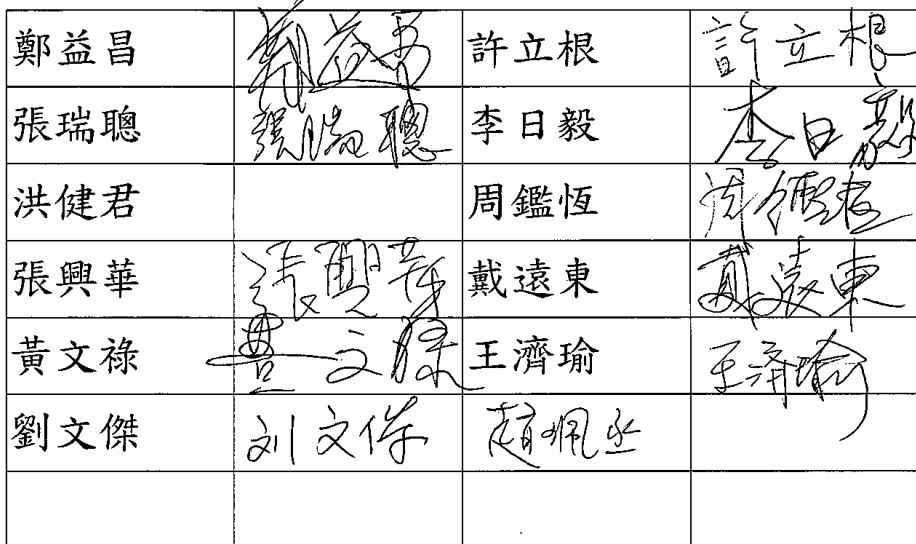 鄭益昌 鄭益昌 許立根 許立根
張瑞聰 張瑞聰 李日毅 李日毅
洪健君 周鑑恆 周鑑恆
張興華 張興華 戴遠東 戴遠東
黃文祿 黃文祿 王濟瑜 王濟瑜
劉文傑 刘文傑 趙珮丞